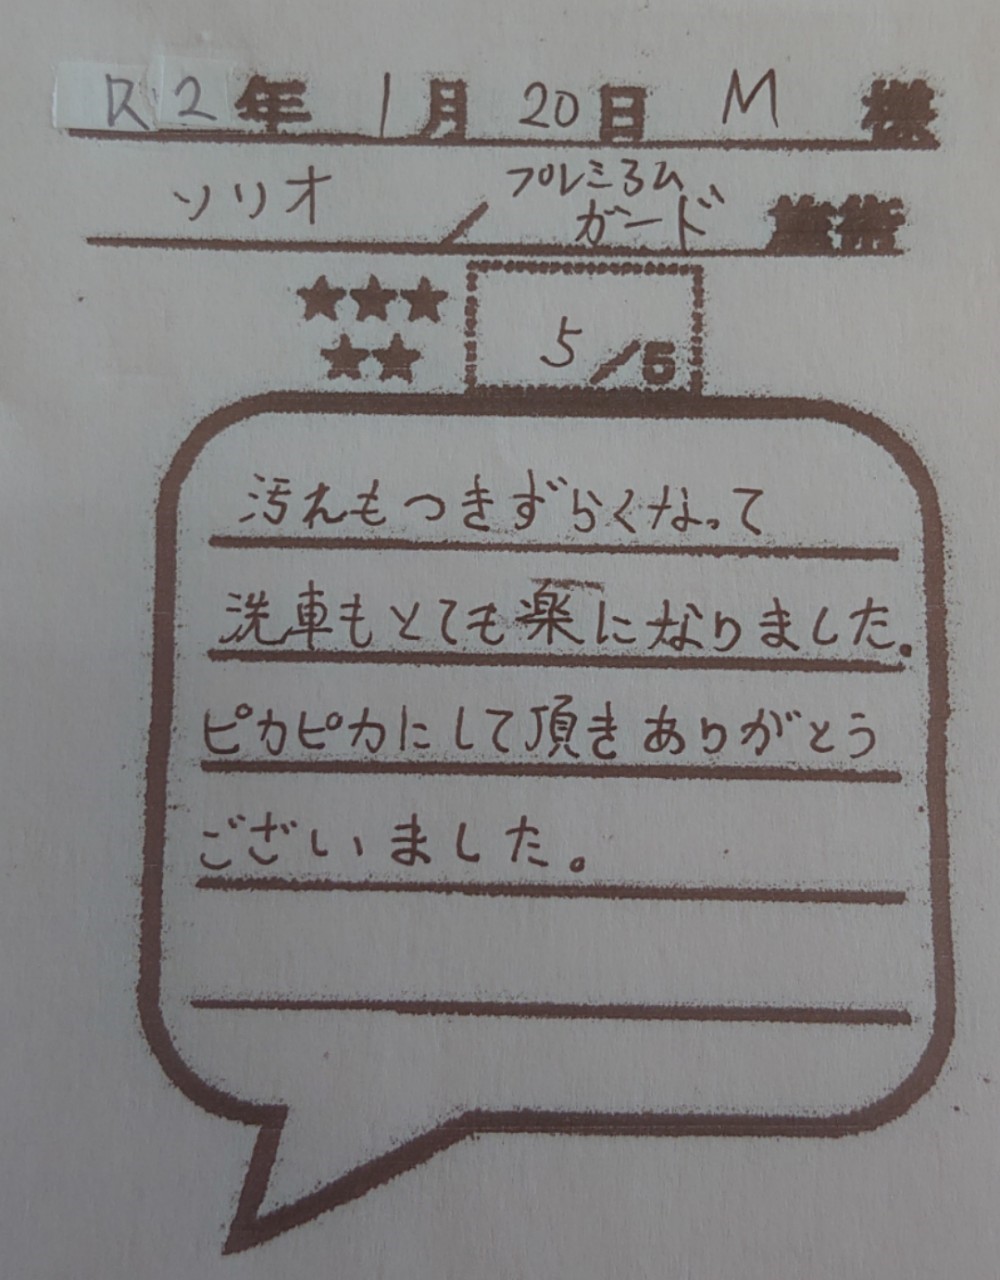 R2年 1月 20日 M 様
ソリオ / プレミアム
ガード 施術
★★★
★★
5/5
汚れもつきずらくなって
洗車もとても楽になりました。
ピカピカにして頂きありがとう
ございました。